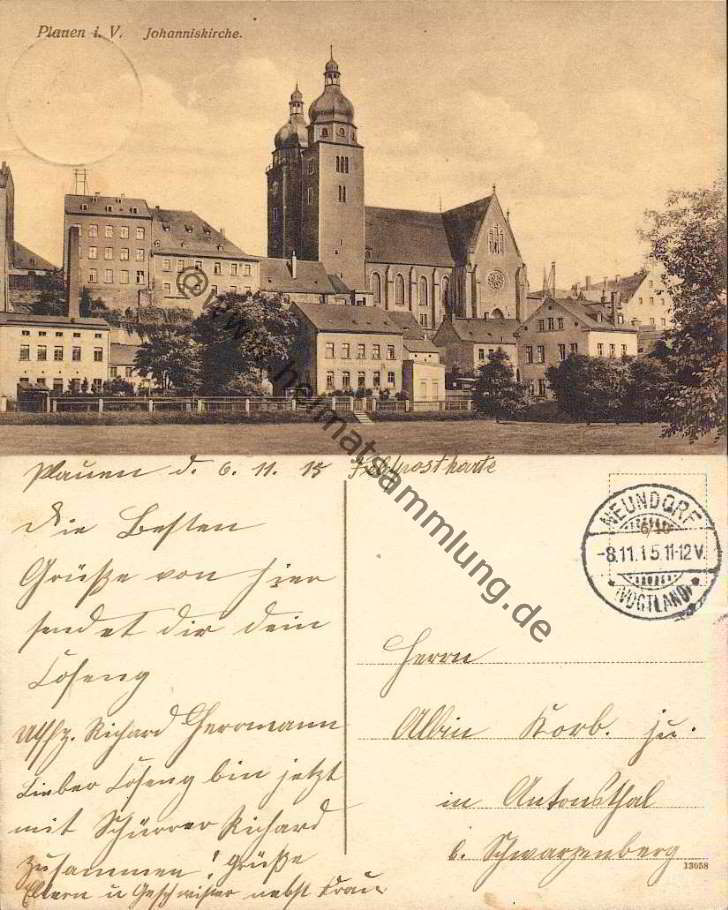 Plauen i. V. Johanniskirche.
© www.heimatsammlung.de
Plauen d. 6. 11. 15 Feldpostkarte
NEUNDORF
-8.11.15.11-12V.
(VOGTLAND)
Die Besten
Grüße von hier
sendet dir dein
Richard Herrmann
Lieber bin jetzt
mit Richard
zusammen! Grüße
Eltern u Geschwister nebst Frau
Herrn
Albin Korb. ju.
in Antonsthal
b. Schwarzenberg
13058